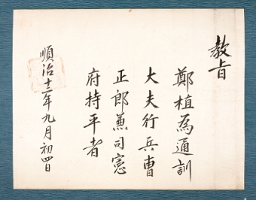 教旨
鄭植為通訓
大夫行兵曹
正郎兼司憲
府持平者
順治十二年九月初四日